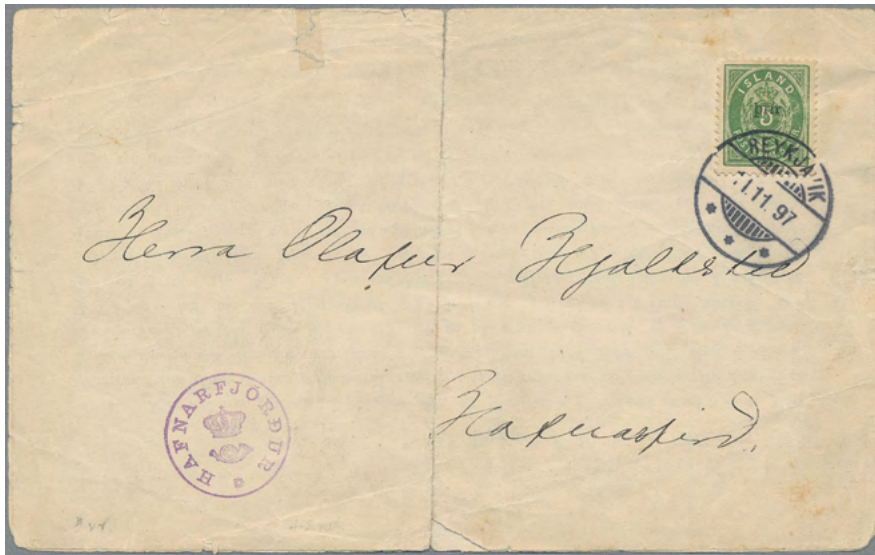 ISLAND
þrír
5
REYKJAVIK
11.11.97
Herra Olafur Hjaltsted
Hafnarfird.
HAFNARFJÖRÐUR